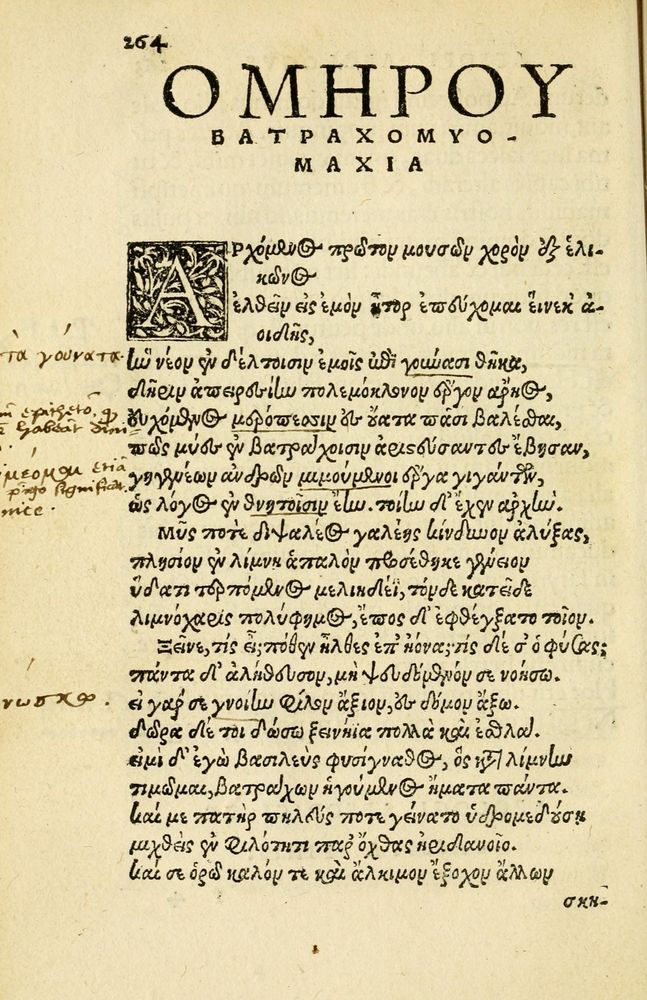 264
ΟΜΗΡΟΥ
ΒΑΤΡΑΧΟΜΥΟ-
ΜΑΧΙΑ
ΑΡχόμενος πρῶτον μουσῶν χορὸν ἐξ ἑλι-
κῶνος
ἐλθεῖν εἰς ἐμὸν ἦτορ ἐπεύχομαι εἵνεκ' ἀ-
οιδῆς,
τὰ γούνατα.
ἣν νέον ἐν δέλτοισιν ἐμοῖς ἐπὶ γούνασι θῆκα,
δῆριν ἀπειρεσίην πολεμόκλονον ἔργον ἄρηος,
εὐχόμενος μερόπεσσιν ἐς οὔατα πᾶσι βαλέσθαι,
πῶς μύες ἐν βατράχοισιν ἀριστεύσαντες ἔβησαν,
γηγενέων ἀνδρῶν μιμούμενοι ἔργα γιγάντων,
ὡς λόγος ἐν θνητοῖσιν ἔην. τοίην δ' ἔχεν ἀρχήν.
Μῦς ποτε διψαλέος γαλέης κίνδυνον ἀλύξας,
πλησίον ἐν λίμνῃ ἁπαλὸν προσέθηκε γένειον
ὕδατι τερπόμενος μελιηδέϊ, τόνδε κατεῖδε
λιμνόχαρις πολύφημος, ἔπος δ' ἐφθέγξατο τοῖον.
Ξεῖνε, τίς εἶ; πόθεν ἦλθες ἐπ' ἠόνα; τίς δέ σ' ὁ φύσας;
πάντα δ' ἀλήθευσον, μὴ ψευδόμενόν σε νοήσω.
εἰ γάρ σε γνοίην φίλον ἄξιον, ἐς δόμον ἄξω.
δῶρα δέ τοι δώσω ξεινήϊα πολλὰ καὶ ἐσθλά.
εἰμὶ δ' ἐγὼ βασιλεὺς φυσίγναθος, ὃς κατὰ λίμνην
τιμῶμαι, βατράχων ἡγούμενος ἤματα πάντα.
καί με πατὴρ πηλεύς ποτε γείνατο ὑδρομεδούσῃ
μιχθεὶς ἐν φιλότητι παρ' ὄχθας ἠριδανοῖο.
καί σε ὁρῶ καλόν τε καὶ ἄλκιμον ἔξοχον ἄλλων
σκη-